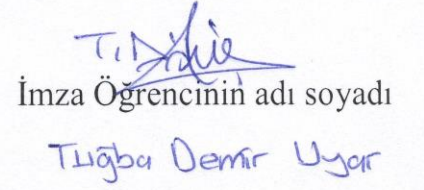 İmza Öğrencinin adı soyadı
Tuğba Demir Uyar